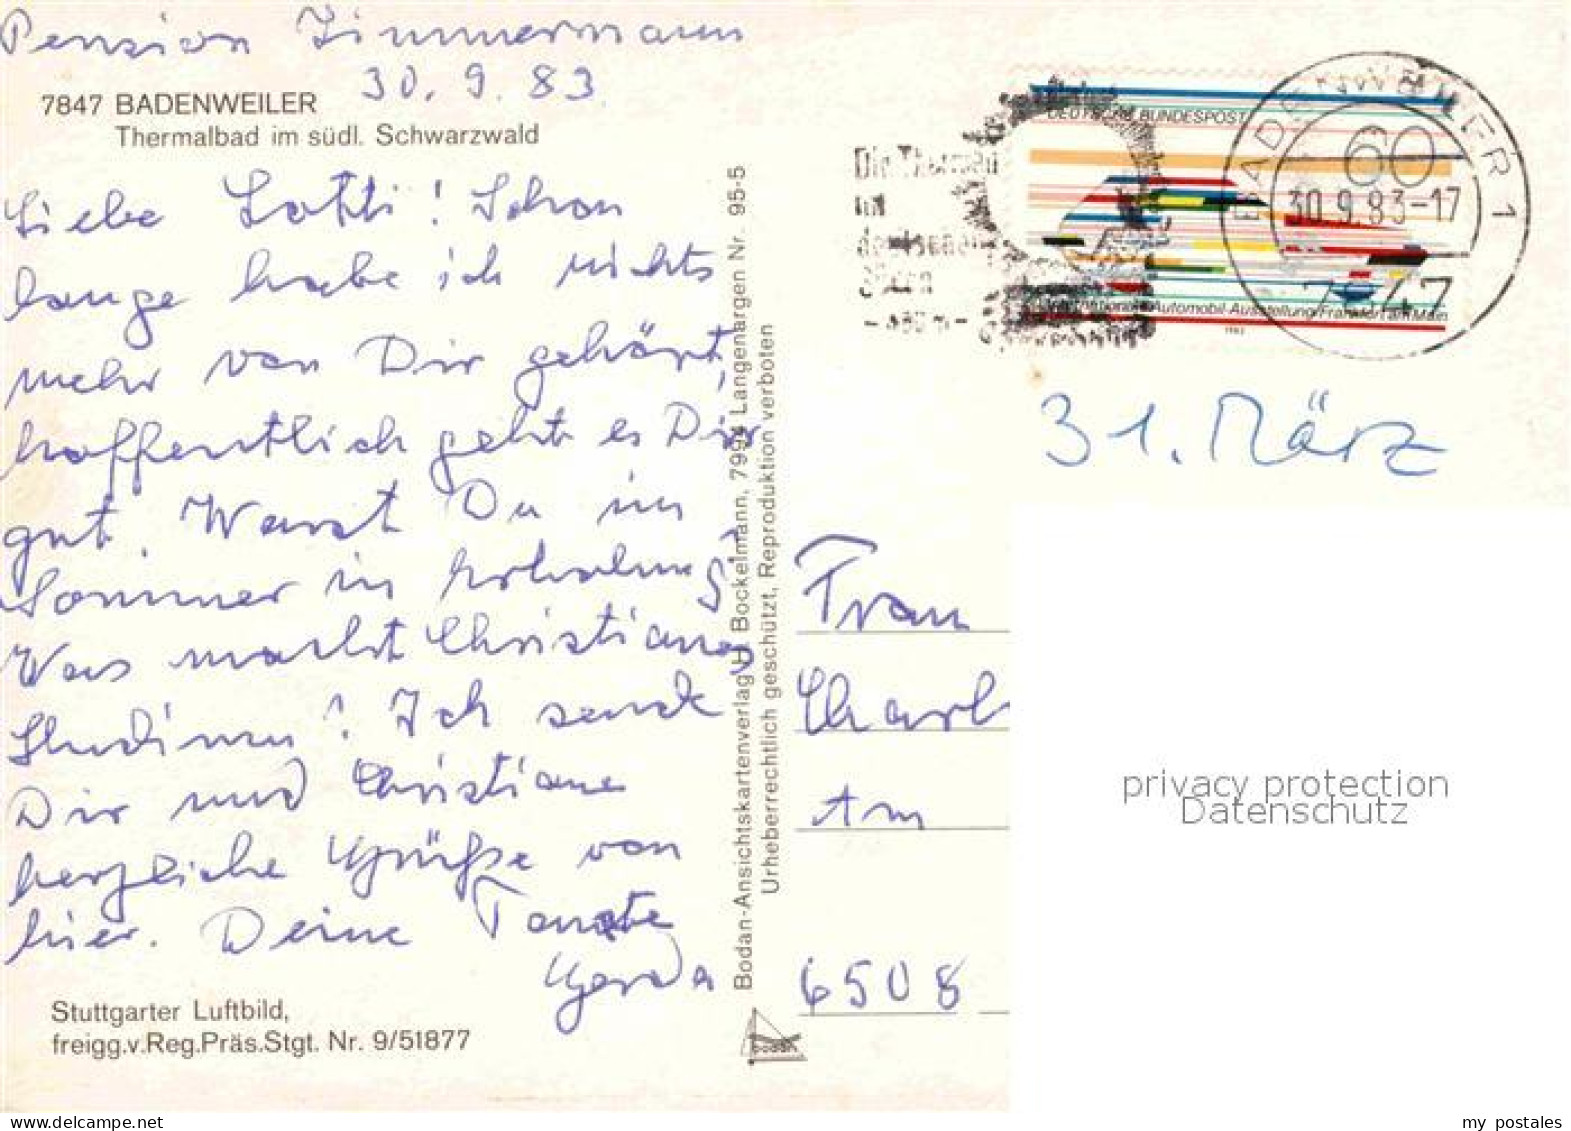 Pension Zimmermann
30.9.83
7847 BADENWEILER
Thermalbad im südl. Schwarzwald
Liebe Lotti! Schon
lange habe ich nichts
mehr von Dir gehört,
hoffentlich geht es Dir
gut. Warst Du im
Sommer in Erholung?
Was macht Christianes
Studium? Ich sende
Dir und Christiane
herzliche Grüße von
hier. Deine Tante
Gerda
Stuttgarter Luftbild,
freigg.v.Reg.Präs.Stgt. Nr. 9/51877
Bodan-Ansichtskartenverlag H. Bockelmann, 7994 Langenargen Nr. 95-5
Urheberrechtlich geschützt, Reproduktion verboten
bodan
Die Thermen
im
deutschen
Süden
DEUTSCHE BUNDESPOST
60
Internationale Automobil-Ausstellung Frankfurt am Main
1983
BADENWEILER 1
30.9.83-17
7847
31. März
Frau
Charl
Am
6508
privacy protection
Datenschutz
my postales